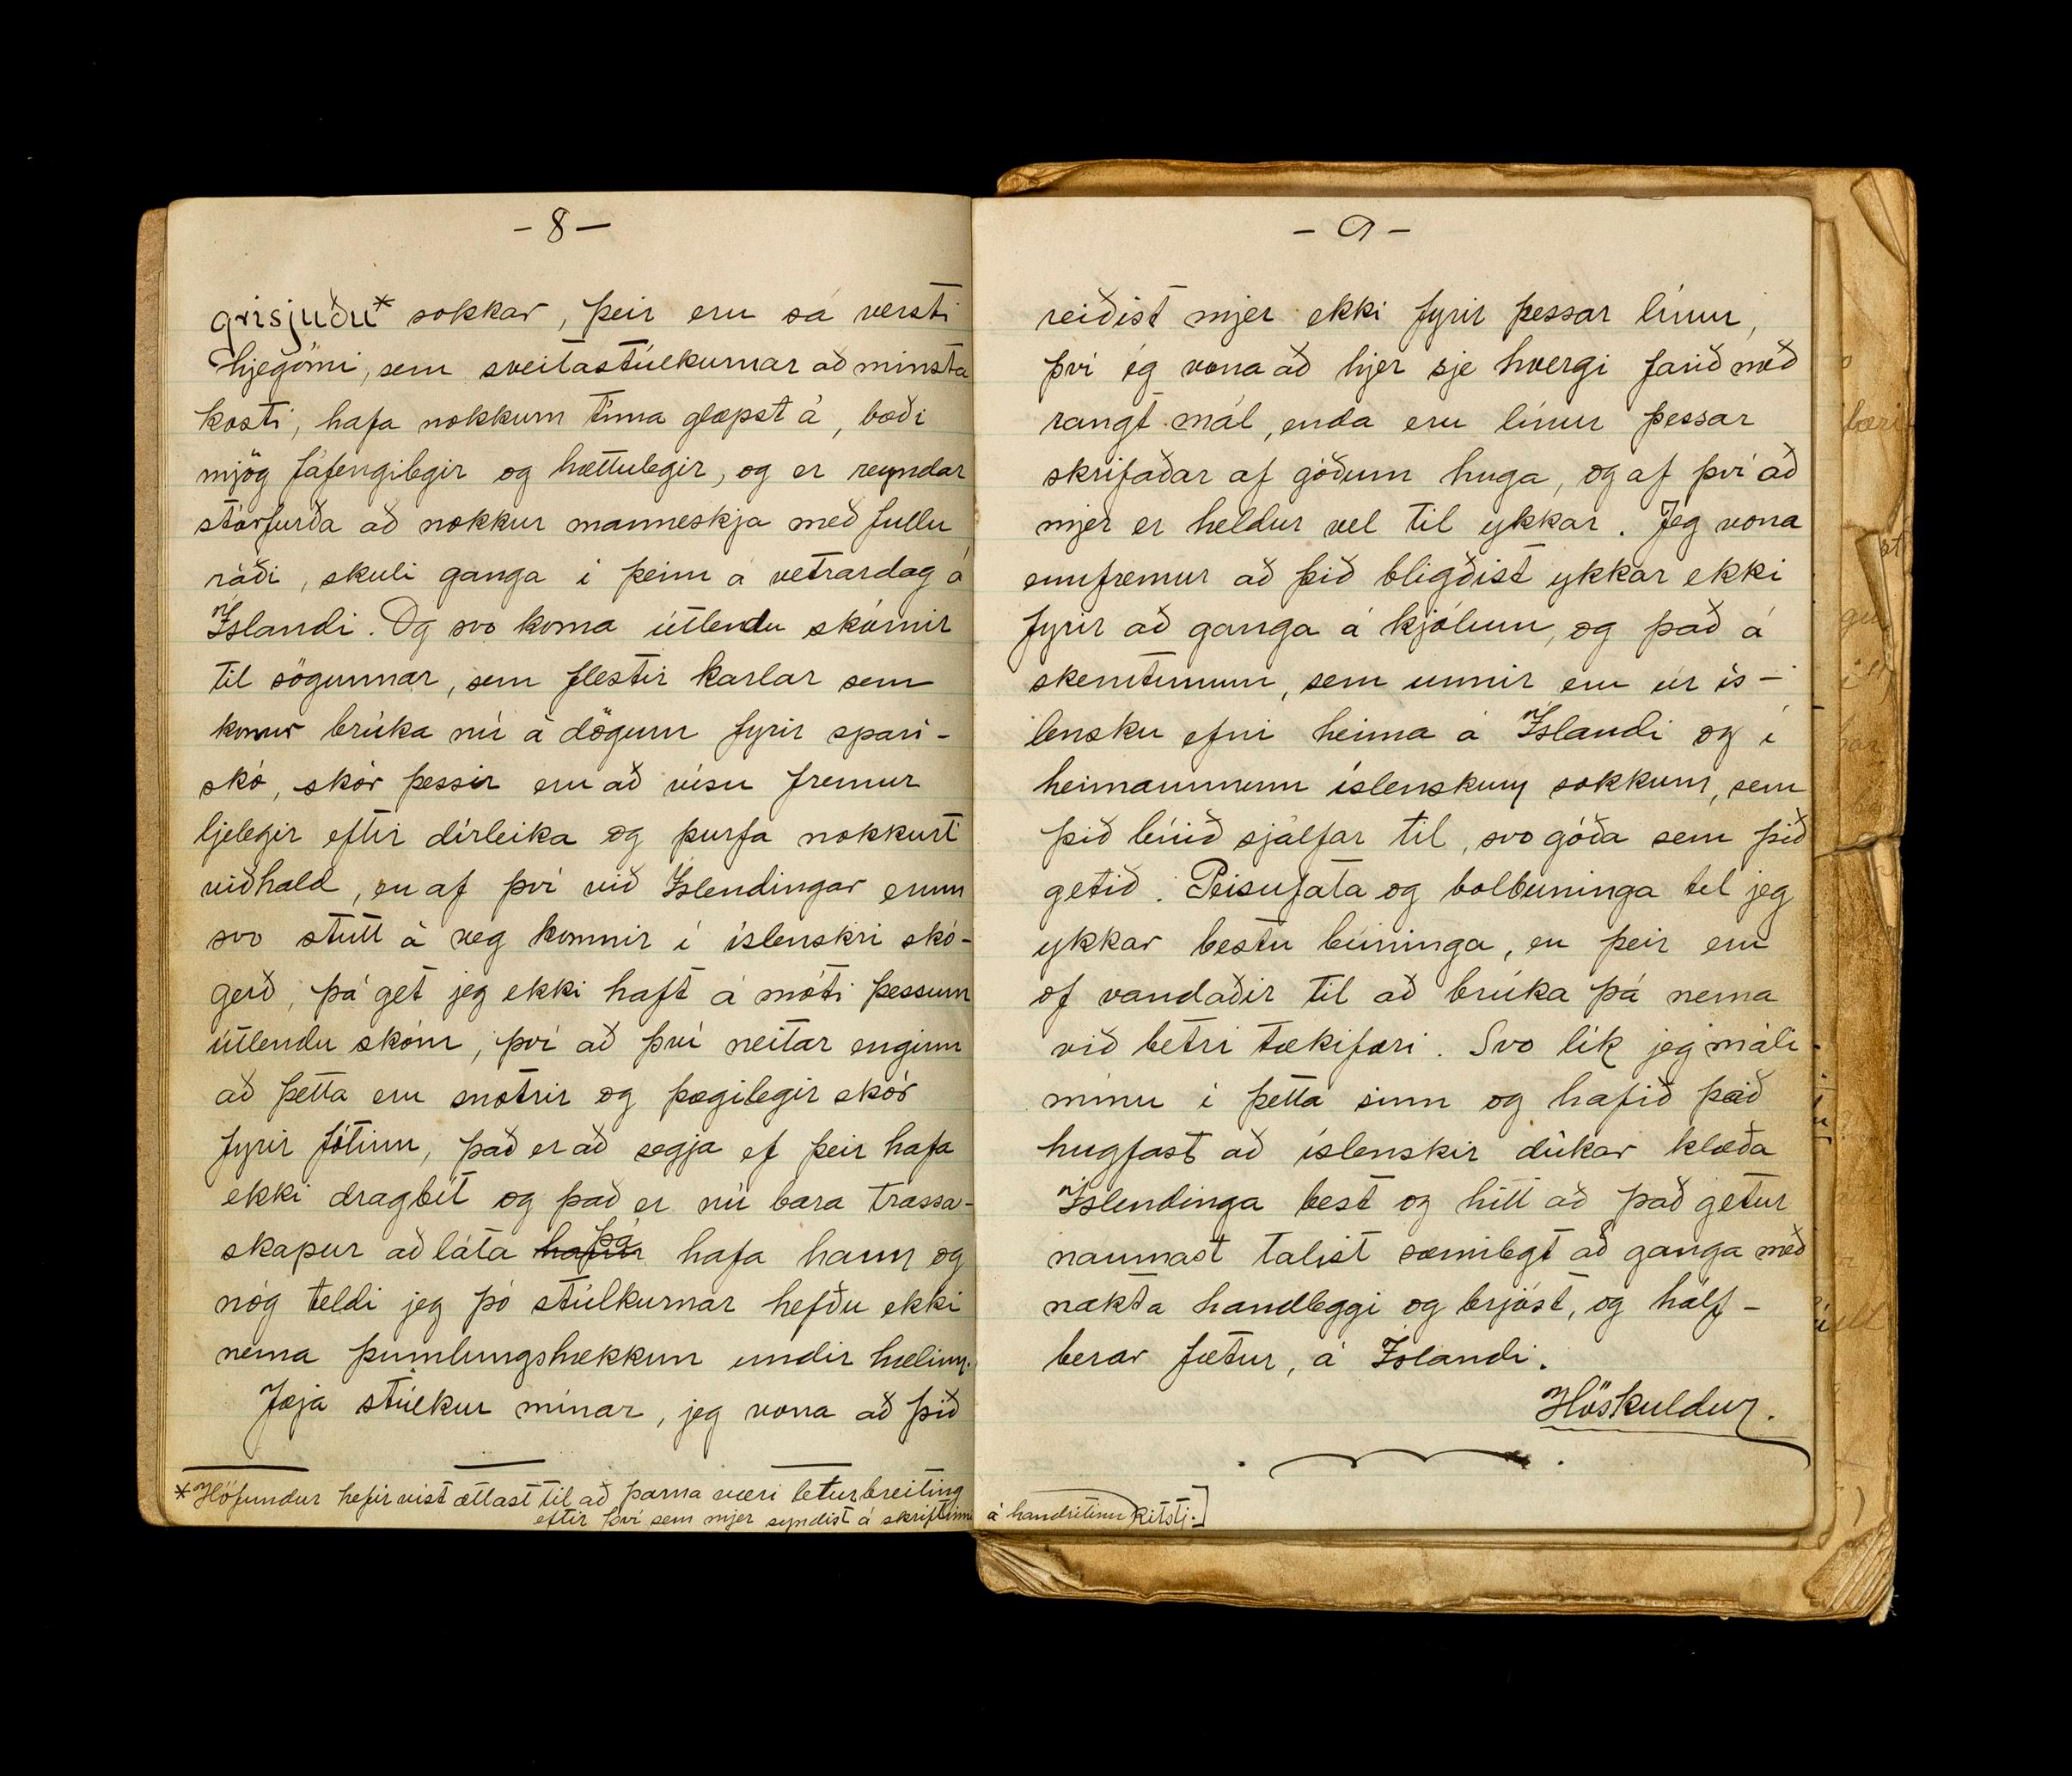 - 8 -
grisjuðu* sokkar, þeir eru sá versti
hjegómi, sem sveitastúlkurnar að minsta
kosti, hafa nokkurn tíma glæpst á, bæði
mjög fáfengilegir og hættulegir, og er reyndar
stórfurða að nokkur manneskja með fullu
ráði, skuli ganga í þeim á vetrardag á
Íslandi. Og svo koma útlendu skórnir
til sögunnar, sem flestir karlar sem
konur brúka nú á dögum fyrir spari-
skó, skór þessir eru að vísu fremur
ljelegir eftir dírleika og þurfa nokkurt
viðhald, en af því við Íslendingar erum
svo stutt á veg komnir í íslenskri skó-
gerð, þá get jeg ekki haft á móti þessum
útlendu skóm, því að því neitar enginn
að þetta eru snotrir og þægilegir skór
fyrir fótinn, það er að segja ef þeir hafa
ekki dragbít og það er nú bara trassa-
skapur að láta þá hafa hann og
nóg teldi jeg þó stúlkurnar hefðu ekki
nema þumlungshækkun undir hælinn.
Jæja stúlkur mínar, jeg vona að þið
*Höfundur hefir vist ætlast til að þarna væri leturbreiting
eftir því sem mjer syndist á skriftinni
- 9 -
reiðist mjer ekki fyrir þessar línur,
því ég vona að hjer sje hvergi farið með
rangt mál, enda eru línur þessar
skrifaðar af góðum huga, og af því að
mjer er heldur vel til ykkar. Jeg vona
ennfremur að þið bligðist ykkar ekki
fyrir að ganga á kjólum, og það á
skemtunum, sem unnir eru úr ís-
lensku efni heima á Íslandi og í
heimaunnum íslenskum sokkum, sem
þið búið sjálfar til, svo góða sem þið
getið. Peisufata og bolbuninga tel jeg
ykkar bestu búninga, en þeir eru
of vandaðir til að brúka þá nema
við betri tækifæri. Svo lík jeg máli
mínu í þetta sinn og hafið það
hugfast að íslenskir dúkar klæða
Íslendinga best og hitt að það getur
naumast talist sæmilegt að ganga með
nakta handleggi og brjóst, og hálf-
berar fætur, á Íslandi.
Höskuldur.
á handritinu Ritstj.]